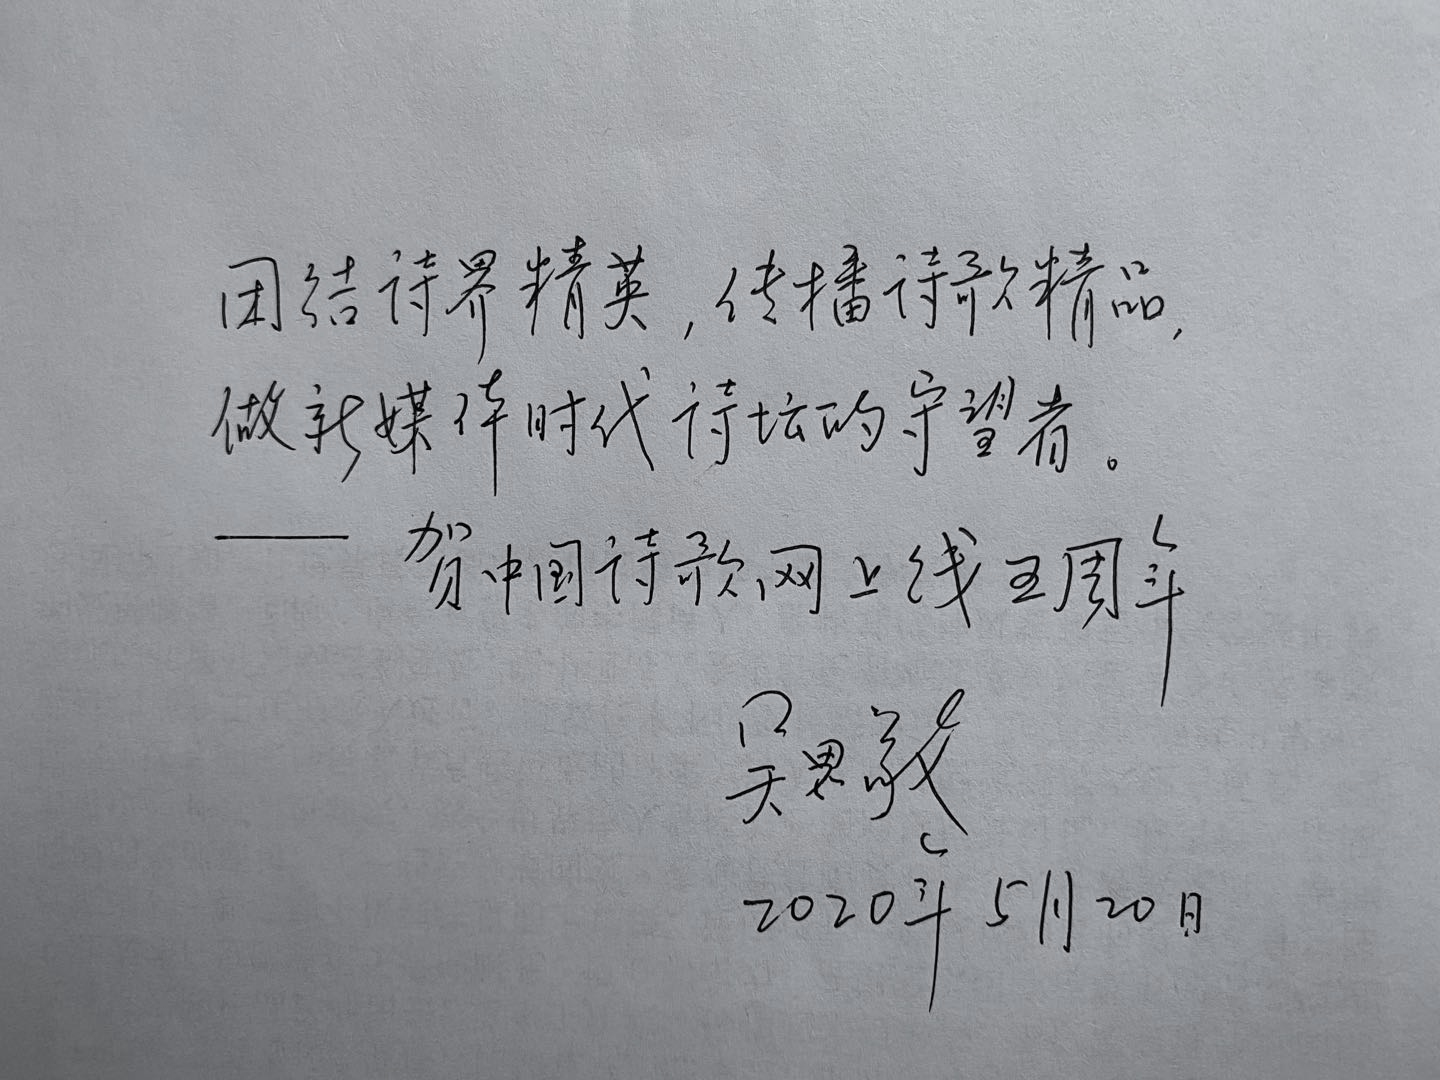 团结诗界精英,传播诗歌精品,
做新媒体时代诗坛的守望者。
——贺中国诗歌网上线五周年
吴思敬
2020年5月20日